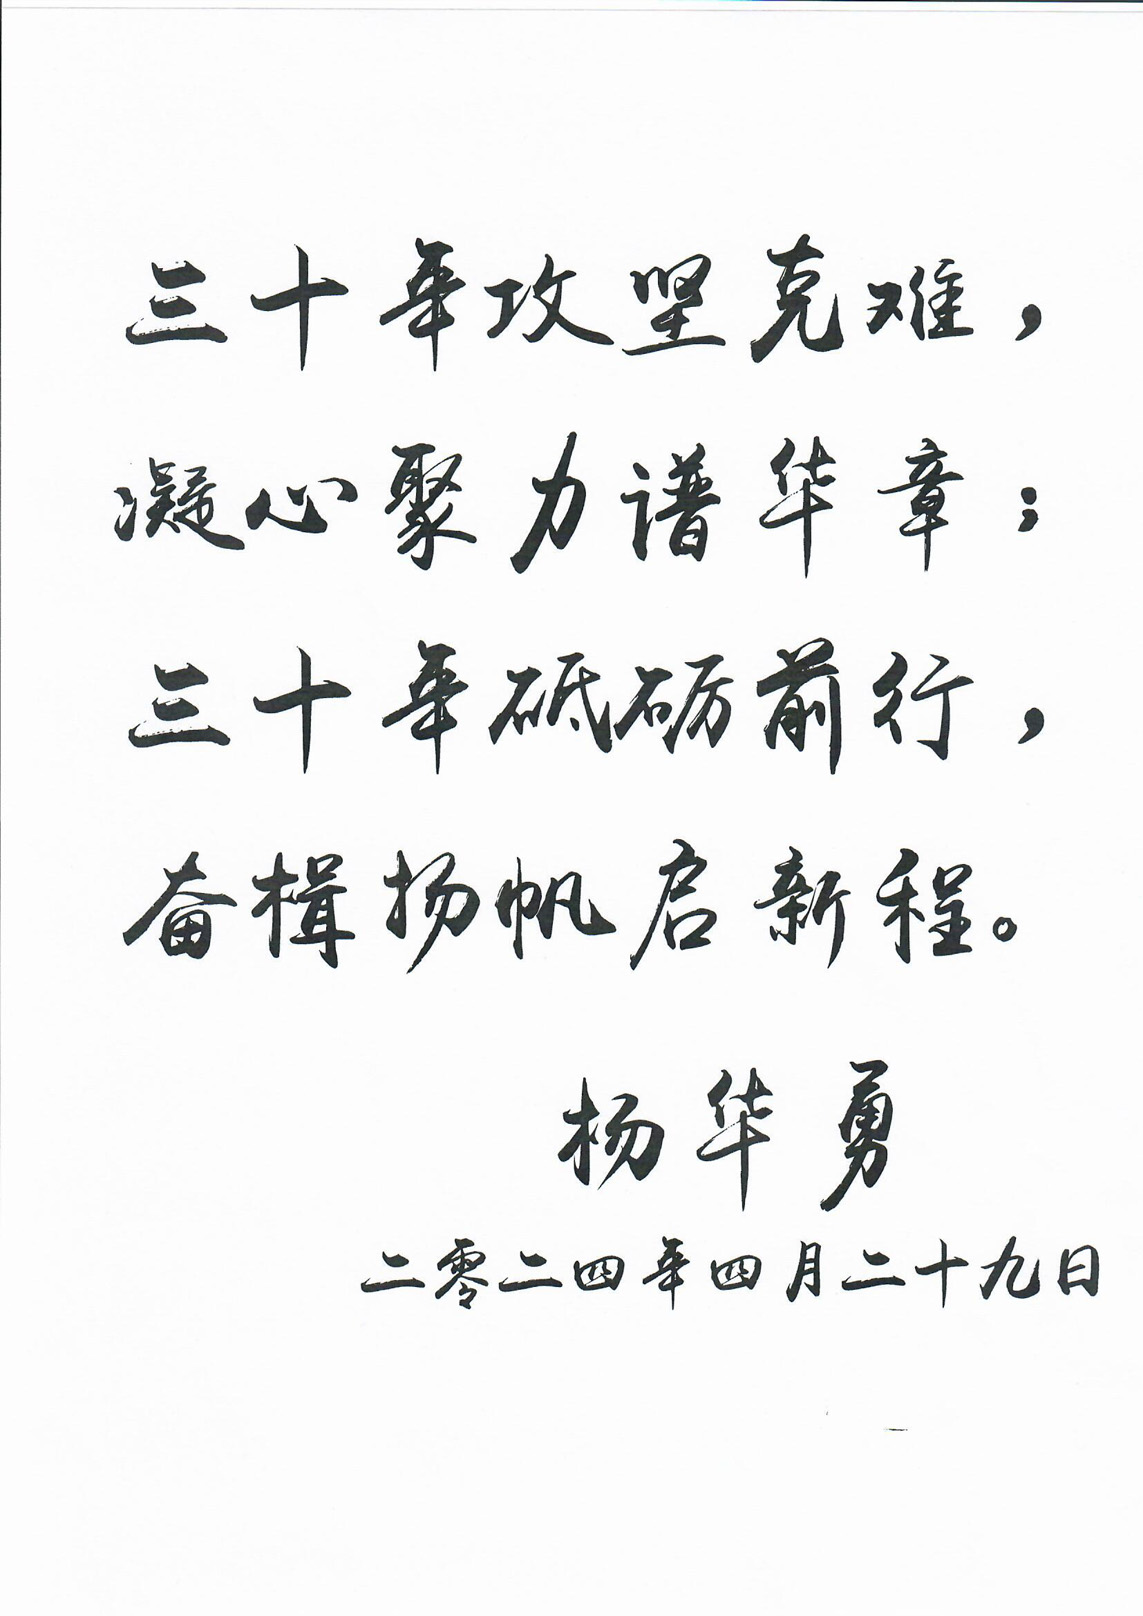 三十年攻坚克难，
凝心聚力谱华章；
三十年砥砺前行，
奋楫扬帆启新程。
杨华勇
二零二四年四月二十九日